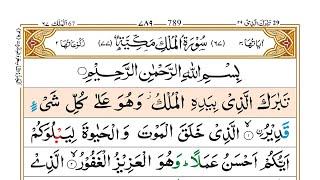 تبٰرك الذی ٢٩ ٧٨٩ 789 الملك ٦٧
اٰیَاتُهَا ٣٠ (٦٧) سُوْرَةُ الْمُلْكِ مَكِّیَّةٌ (٧٧) رُكُوْعَاتُهَا ٢
بِسْمِ اللّٰهِ الرَّحْمٰنِ الرَّحِیْمِ
تَبٰرَكَ الَّذِیْ بِیَدِهِ الْمُلْكُ ؗ وَهُوَ عَلٰی كُلِّ شَیْءٍ
قَدِیْرُۨ ۙ﴿١﴾ الَّذِیْ خَلَقَ الْمَوْتَ وَالْحَیٰوةَ لِیَبْلُوَكُمْ
اَیُّكُمْ اَحْسَنُ عَمَلًا ؕ وَهُوَ الْعَزِیْزُ الْغَفُوْرُ ۙ﴿٢﴾ الَّذِیْ